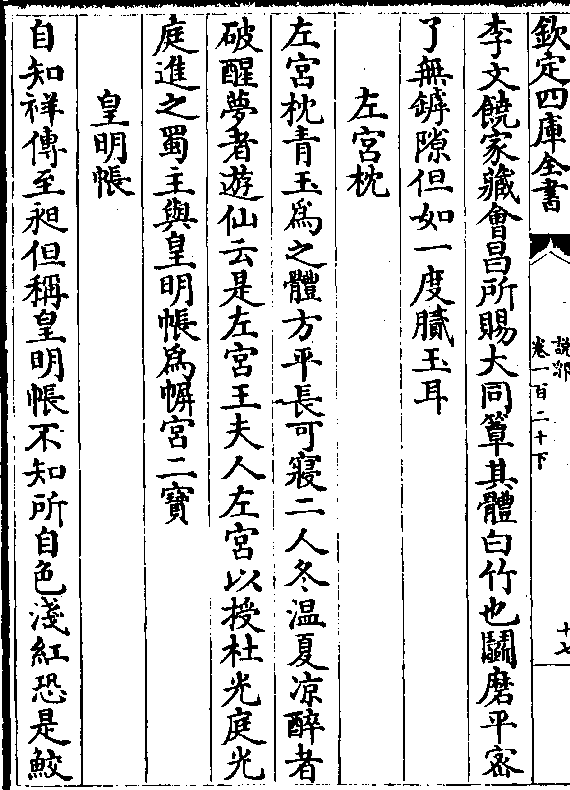 欽定四庫全書
說郛
卷一百二十下
十七
李文饒家藏會昌所賜大同簟其體白竹也鬭磨平密
了無罅隙但如一度膩玉耳
左宮枕
左宮枕青玉為之體方平長可寢二人冬温夏凉醉者
破醒夢者遊仙云是左宮王夫人左宮以授杜光庭光
庭進之蜀主與皇明帳為幈宮二寳
皇明帳
自知祥傳至昶但稱皇明帳不知所自色淺紅恐是鮫